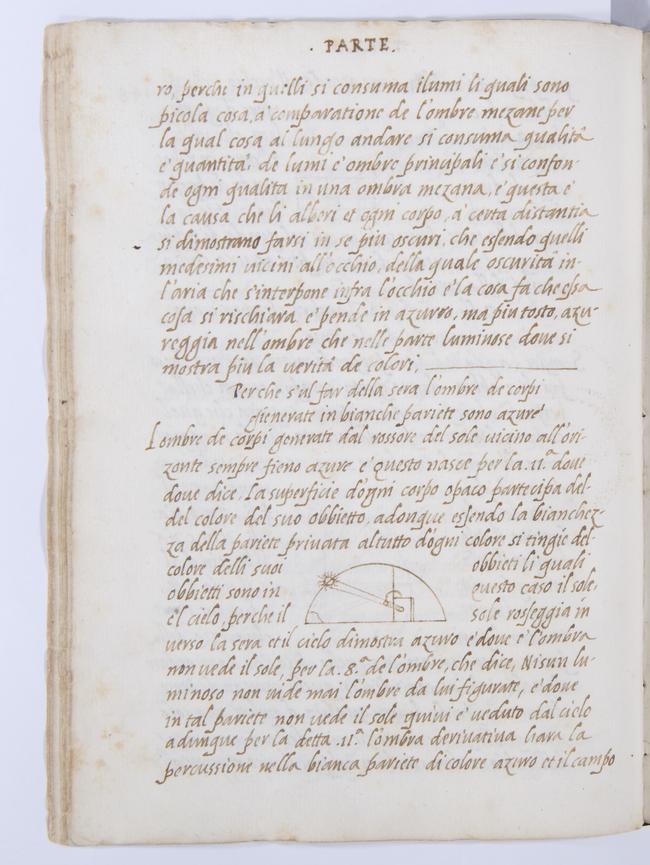 . PARTE.
ro, perche in quelli si consuma ilumi li quali sono
picola cosa, a comparatione de l'ombre mezane per
la qual cosa al lungo andare si consuma qualità
e quantità, de lumi e ombre principali e si confon-
de ogni qualita in una ombra mezana, e questa e
la causa che li alberi et ogni corpo, a certa distantia
si dimostrano farsi in se piu oscuri, che essendo quelli
medesimi uicini all'occhio, della quale oscurità in-
l'aria che s'interpone infra l'occhio e la cosa fa che essa
cosa si rischiara e pende in azurro, ma piu tosto, azu-
reggia nell'ombre che nelle parte luminose doue si
mostra piu la verità de colori,
Perche s'ul far della sera l'ombre de corpi
generate in bianche pariete sono azure'
Lombre de corpi generate dal rossore del sole uicino all'ori-
zonte sempre fieno azure e questo nasce per la .11.a doue
doue dice, La superficie d'ogni corpo opaco partecipa del-
del colore del suo obbietto, adonque essendo la bianchez-
za della pariete priuata altutto d'ogni colore si tingie del-
colore delli suoi obbieti li quali
obbietti sono in questo caso il sole,
e'l cielo, perche il sole rosseggia in
uerso la sera et il cielo dimostra azuro e doue e l'ombra
non uede il sole, per la .8.a de l'ombre, che dice, Nisun lu-
minoso non uide mai l'ombre da lui figurate, e doue
in tal pariete non uede il sole quiui e ueduto dal cielo
adunque per la detta .11.a l'ombra deriuatiua hara la
percussione nella bianca pariete di colore azuro et il campo